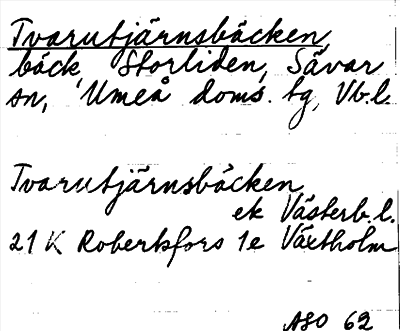 Tvarutjärnsbäcken,
bäck, Storliden, Sävar
sn, Umeå doms. tg, Vb.l.
Tvarutjärnsbäcken,
ek Västerb.l.
21 K Robertsfors 1e Växtholm
ASO 62